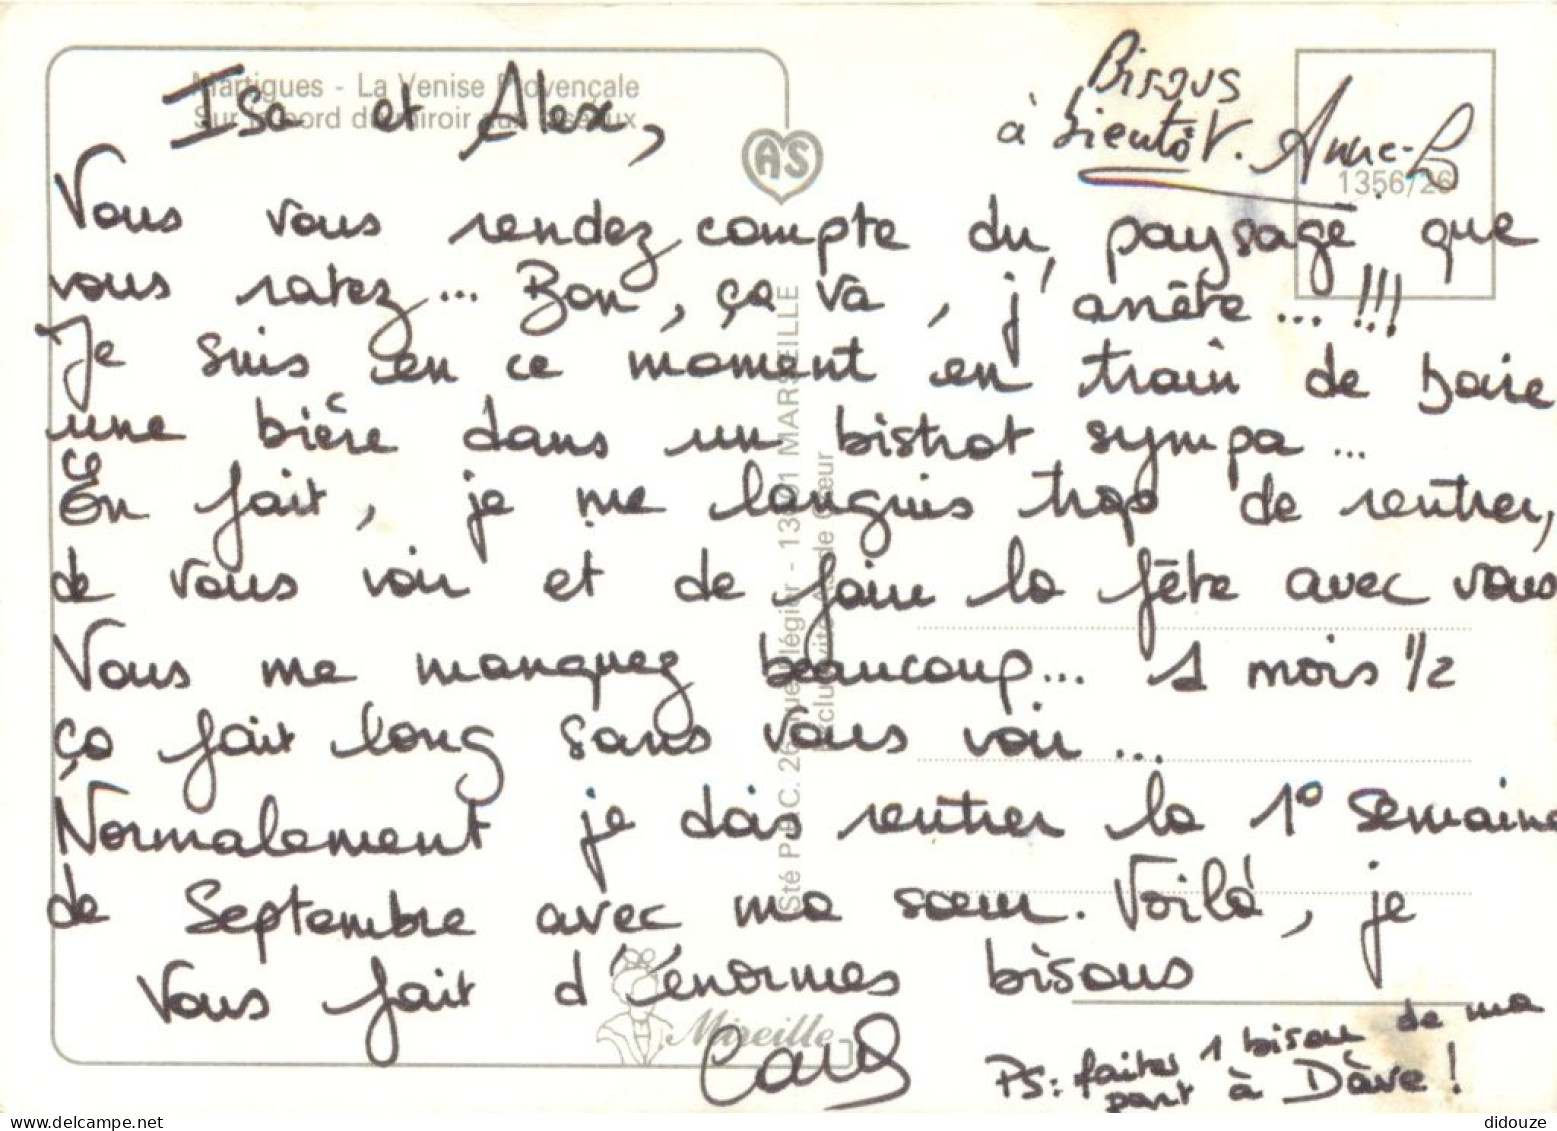 Martigues - La Venise Provençale
Sur le bord du miroir aux oiseaux
Isa et Alex,
Bisous
à bientôt. Anne-
AS
1356/26
Vous vous rendez compte du paysage que
vous ratez... Bon, ça va, j'arrête...!!!
Je suis en ce moment en train de boire
une bière dans un bistrot sympa...
En fait, je me languis trop de rentrer,
de vous voir et de faire la fête avec vous
Vous me manquez beaucoup... 1 mois 1/2
ça fait long sans vous voir...
Normalement je dois rentrer la 1° semaine
de Septembre avec ma sœur. Voilà, je
vous fait d'énormes bisous
Mireille
PS: faites 1 bisou de ma
part à Dave!
13001 MARSEILLE
didouze